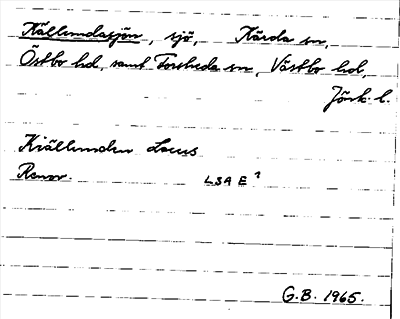 Källundasjön, sjö, Kärda sn,
Östbo hd, samt Forsheda sn, Västbo hd,
Jönk. l.
Kiällunden Lacus
Renov. LSA E¹
G.B. 1965.